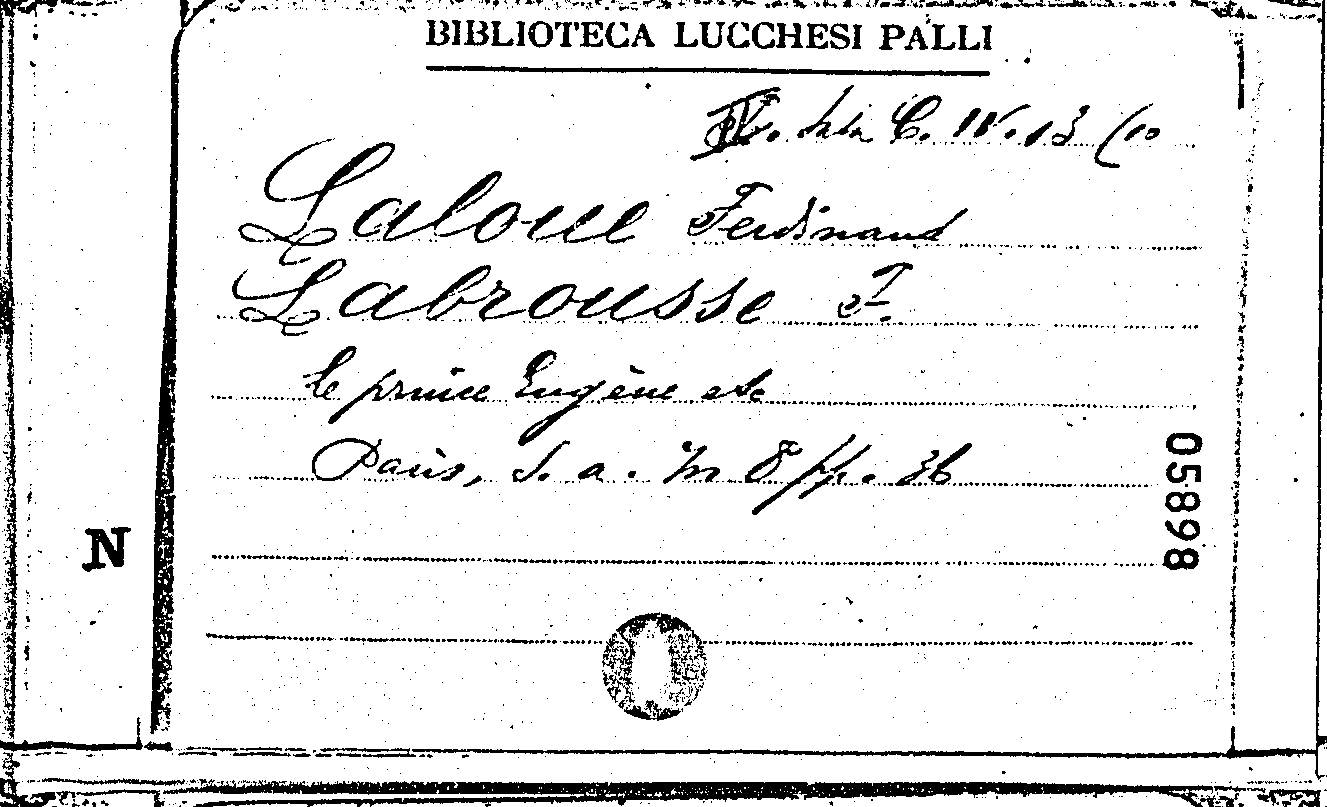 BIBLIOTECA LUCCHESI PALLI
IV. sala C. IV. 13 (10
Laloue Ferdinand
Labrousse F.
le prince Eugène etc
Paris, s. a. in 8 pp. 36
05898
N